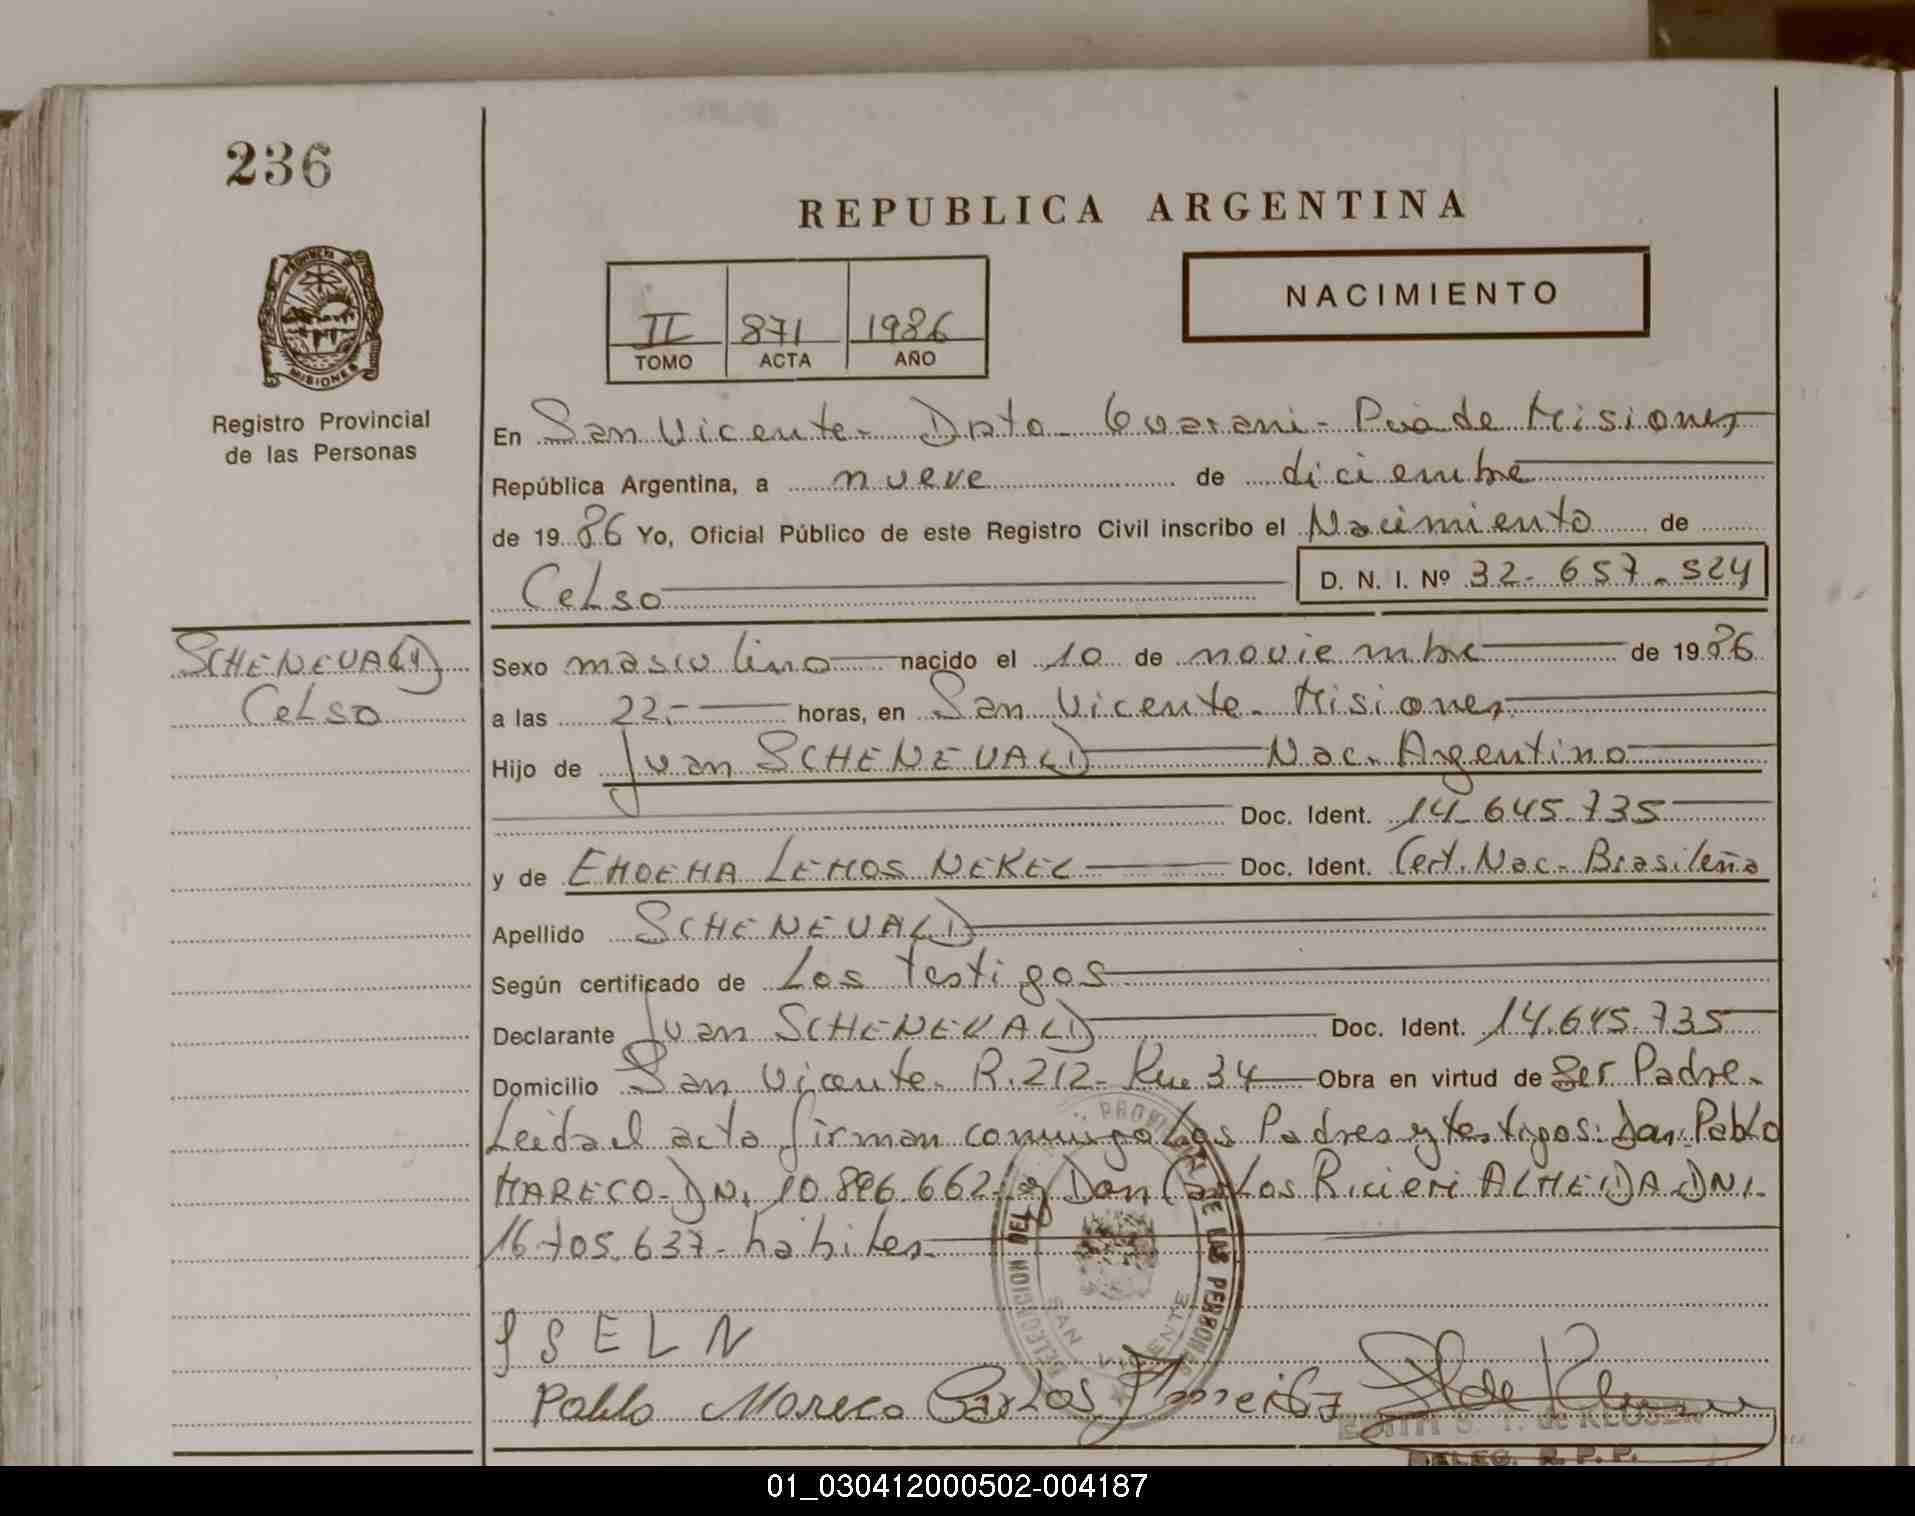 236
REPUBLICA ARGENTINA
PROVINCIA DE
MISIONES
Registro Provincial
de las Personas
II 871 1986
TOMO ACTA AÑO
NACIMIENTO
En San Vicente - Dpto - Guarani - Pcia de Misiones
República Argentina, a nueve de diciembre
de 1986 Yo, Oficial Público de este Registro Civil inscribo el Nacimiento de
Celso D. N. I. Nº 32-657-524
SCHENEVALD
Celso
Sexo masculino nacido el 10 de noviembre de 1986
a las 22.- horas, en San Vicente - Misiones
Hijo de Juan SCHENEVALD Nac. Argentino
Doc. Ident. 14-645-735
y de EMOEMA LEMOS NEKEL Doc. Ident. Cert. Nac. - Brasileña
Apellido SCHENEVALD
Según certificado de Los testigos
Declarante Juan SCHENEVALD Doc. Ident. 14.645.735
Domicilio San Vicente - R. 212 - Km 34 Obra en virtud de Ser Padre -
Leida el acta firman conmigo Los Padres y testigos: Don Pablo
MARECO - DNI 10.896.662 - y Don Carlos Ricieri ALMEIDA DNI.
16.705.637 - hábiles -
DELEGACION DEL PROVINCIAL DE LAS PERSONAS
SAN VICENTE
JSELN
Pablo Mareco Carlos
EDITH S. T. de KLUSEN
DELEG. R. P. P.
01_030412000502-004187